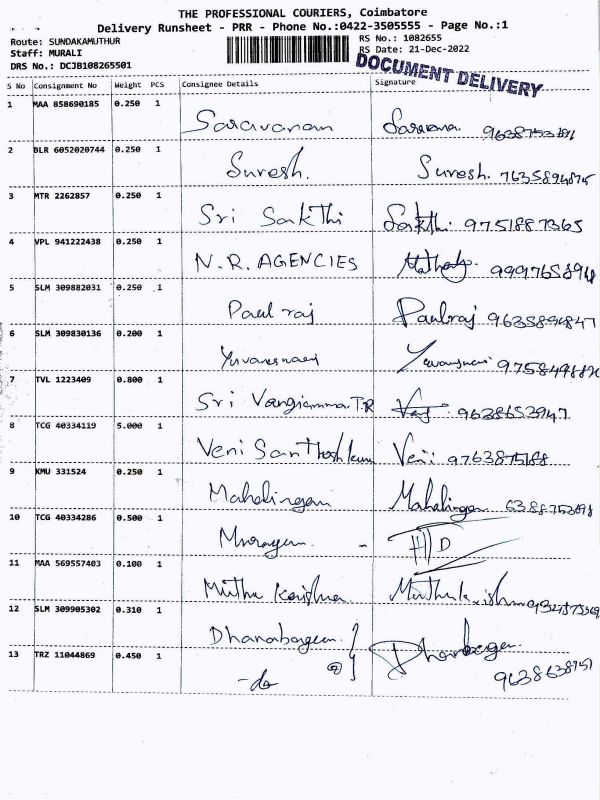 THE PROFESSIONAL COURIERS, Coimbatore
Delivery Runsheet - PRR - Phone No.:0422-3505555 - Page No.:1
Route: SUNDAKAMUTHUR RS No.: 1082655
Staff: MURALI RS Date: 21-Dec-2022
DRS No.: DCJB108265501 DOCUMENT DELIVERY
S No Consignment No Weight PCS Consignee Details Signature
1 MAA 858690185 0.250 1 Saravanan
2 BLR 6052020744 0.250 1 Suresh. Suresh.
3 MTR 2262857 0.250 1 Sri Sakthi Sakthi 9751887365
4 VPL 941222438 0.250 1 N.R. AGENCIES
5 SLM 309882031 0.250 1 Paul raj Paulraj 9635894847
6 SLM 309830136 0.200 1
7 TVL 1223409 0.800 1 Sri Vangiamma. T.R 9638653947
8 TCG 40334119 5.000 1 Veni Santhoshkum Veni 9763875188
9 KMU 331524 0.250 1 Mahalingam Mahalingam
10 TCG 40334286 0.500 1 Murugan. -
11 MAA 569557403 0.100 1 Muthu Krishna Muthukrishna
12 SLM 309905302 0.310 1
13 TRZ 11044869 0.450 1 -do